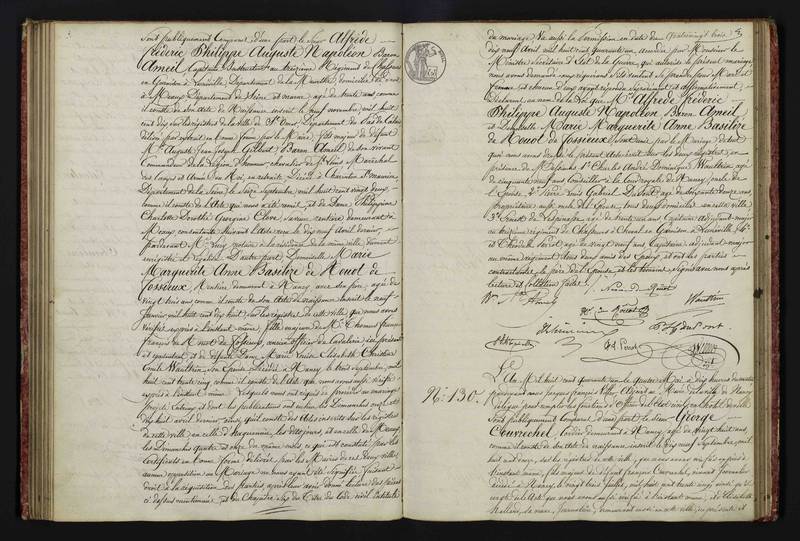 sont publiquement comparus d'une part le Sieur Alfrède
fréderic Philippe Auguste Napoléon Baron
Ameil Capitaine Instructeur au treizième Régiment de Chasseurs
en Garnison à Lunéville, Département de la Meurthe, domicilié de droit
à Meaux, Département de Seine et marne, agé de trente ans comme
il conste de son Acte de Naissance inscrit le neuf novembre mil huit
cent dix sur les registres de la ville de St Omer, Département du Pas de Calais
délivré par extrait en bonne forme par le Maire, fils majeur de défunt
Mr Auguste Jean Joseph Gilbert Baron Ameil de son vivant
Commandeur de la Légion d'honneur, chevalier de St Louis, Maréchal
des camps et Armées du Roi, en retraite, décédé à Charenton St maurice
Département de la Seine, le seize Septembre mil huit cent vingt deux,
comme il conste de l'Acte qui nous a été remis, et de Dame Philippine
Charlotte Dorothé Georgine Clere, sa veuve, rentière demeurant à
Meaux, consentante suivant Acte reçu le dix neuf avril dernier,
pardevant Me notaire à la résidence de la même ville, dûment
enregistré et légalisé. D'autre part Demoiselle Marie
Marguerite Anne Basilixe de Nouot de
Fossieux Rentière demeurant à Nancy avec son père, agée de
vingt trois ans comme il conste de son Acte de naissance inscrit le neuf
janvier mil huit cent dix huit sur les registres de cette ville, que nous avons
vérifié à l'instant même, fille majeure de Mr Thomas françois
de Nouot de Fossieux, ancien officier de Cavalerie, ici présent
et consentant et de défunte Dame Marie Louise Elisabeth Christine
Emile Wautrin, son Epouse, décédée à Nancy, le trois septembre mil
huit cent trente cinq comme il conste de l'Acte que nous avons aussi vérifié
à l'instant même. Lesquels nous ont requis de procéder au mariage
projeté entr'eux et dont les publications ont eu lieu les Dimanches onze et
dix huit avril dernier, ainsi qu'il conste des Actes inscrits sur les registres
de cette ville, en celle de les dits jours, et en celle de Meaux
les Dimanches quatre et onze du même mois, ce qui est constaté par les
certificats en bonne forme délivrés par les Maires de ces deux villes,
aucune opposition au Mariage ne nous ayant été signifiée, faisant
droit à la réquisition des Parties, après leur avoir donné lecture des pièces
ci dessus mentionnées et du Chapitre six du Titre du Code civil intitulé
du mariage. Vu aussi la Permission en date du (quatrevingt trois) 83
dix neuf Avril mil huit cent quarante un accordée par Monsieur le
Ministre Secrétaire d'Etat de la Guerre, qui autorise le présent mariage
nous avons demandé aux requérans s'ils veulent se prendre pour Mari et
Femme et chacun d'eux ayant répondu séparément et affirmativement,
Déclarons, au nom de la Loi que Mr Alfrède fréderic
Philippe Auguste Napoléon Baron Ameil
et Demoiselle Marie Marguerite Anne Basilixe
de Nouot de Fossieux, sont unis par le Mariage; de tout
quoi nous avons dressé le présent Acte inscrit sur les deux registres en
présence de Messieurs 1° Charles André Dominique Wautrin agé
de cinquante neuf ans Conseiller à la Cour royale de Nancy, oncle de
l'Epouse; 2° Pierre Louis Gabriel Dupont, agé de soixante douze ans
propriétaire aussi oncle de l'Epouse, tous deux domiciliés en cette ville
3° Ernest de Lespinasse, agé de trente un ans Capitaine adjudant major
au treizième régiment de Chasseurs à Cheval en Garnison à Lunéville, 4°
et Perrot agé de vingt neuf ans Capitaine adjudant major
au même régiment, tous deux amis des Epoux, et ont les parties
contractantes, le père de l'Epouse et les témoins signé avec nous après
lecture et collation faites.
Bn Ameil Nouot
Wautrin
Dupont
Perrot
N.° 130.
L'An Mil huit cent quarante un le quatre Mai à dix heures du matin
pardevant nous Jacques françois Adjoint au Maire de la ville de Nancy
délégué pour remplir les fonctions d'officier de l'Etat civil en l'hôtel de ville
sont publiquement comparus d'une part le Sieur George
Couvrechel, demeurant à Nancy, agé de vingt huit ans,
comme il conste de son Acte de naissance inscrit le dix neuf Septembre, mil
huit cent douze, sur les registres de cette ville, que nous avons vérifié à
l'instant même, fils majeur de défunt françois Couvrechel, vivant Journalier
décédé à Nancy, le vingt trois Juillet, mil huit cent trente cinq ainsi qu'il
conste de l'Acte que nous avons aussi vérifié à l'instant même, et d'Elisabeth
sa veuve, Journalière, demeurant aussi en cette ville, ici présente et